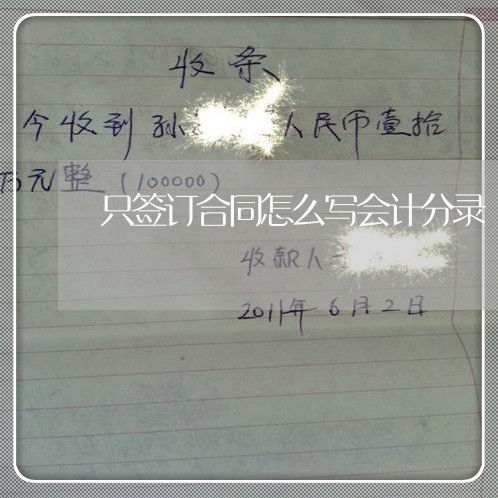 收条
今收到孙 人民币壹拾
万元整(100000)
只签订合同怎么写会计分录
收款人
2011年6月2日